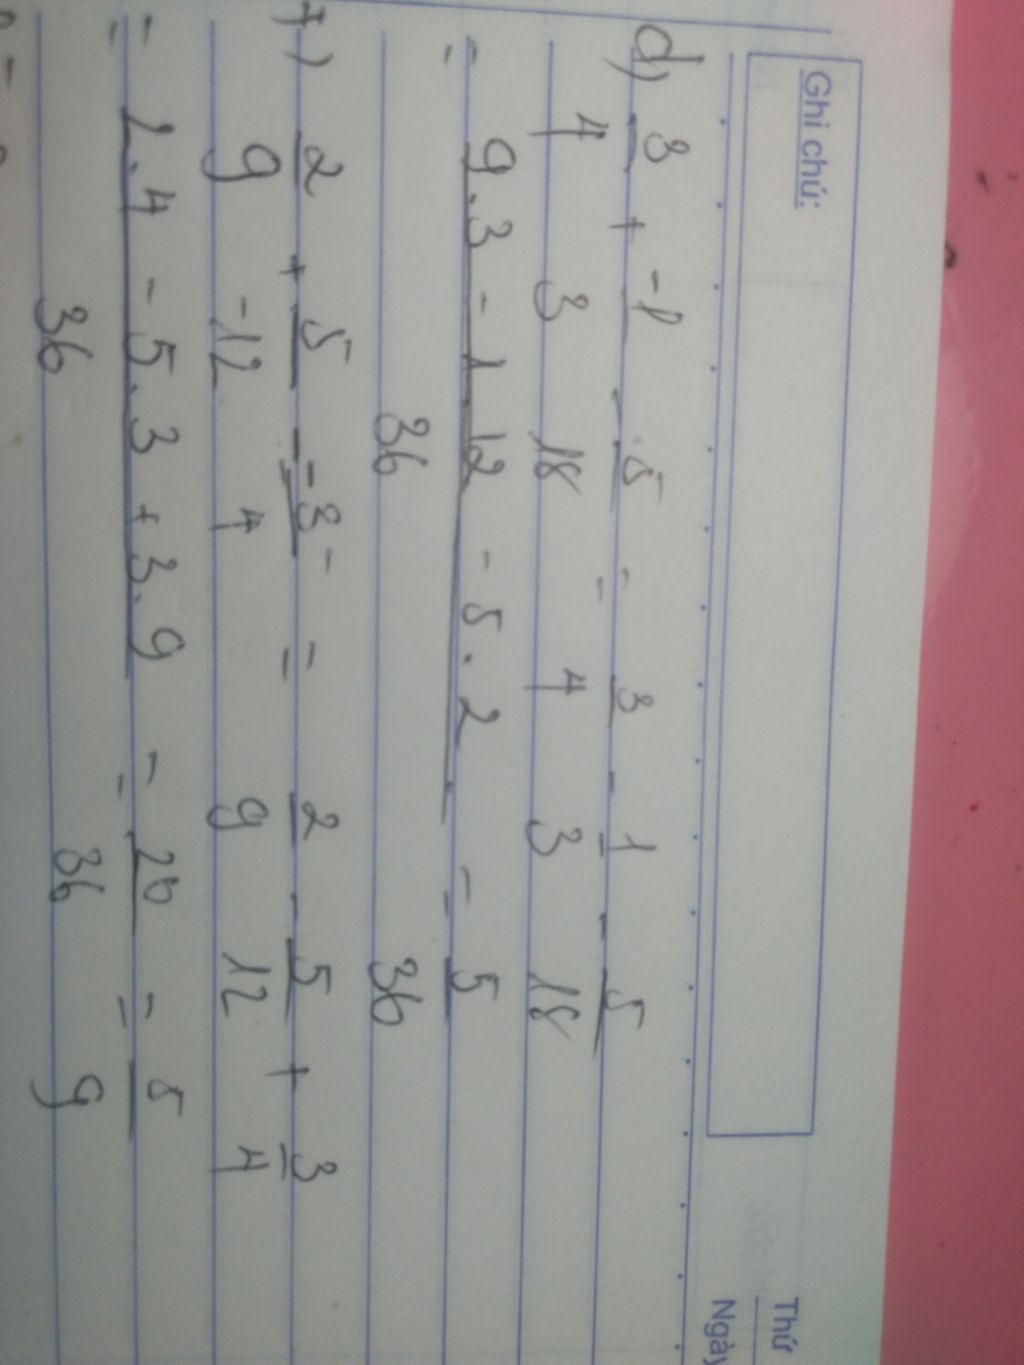 Ghi chú:
Thứ
Ngày
d) 3/4 + -1/3 - 5/18 = 3/4 - 1/3 - 5/18
= 9.3 - 1.12 - 5.2 / 36 = 5/36
f) 2/9 + 5/-12 - -3/4 = 2/9 - 5/12 + 3/4
= 2.4 - 5.3 + 3.9 / 36 = 20/36 = 5/9